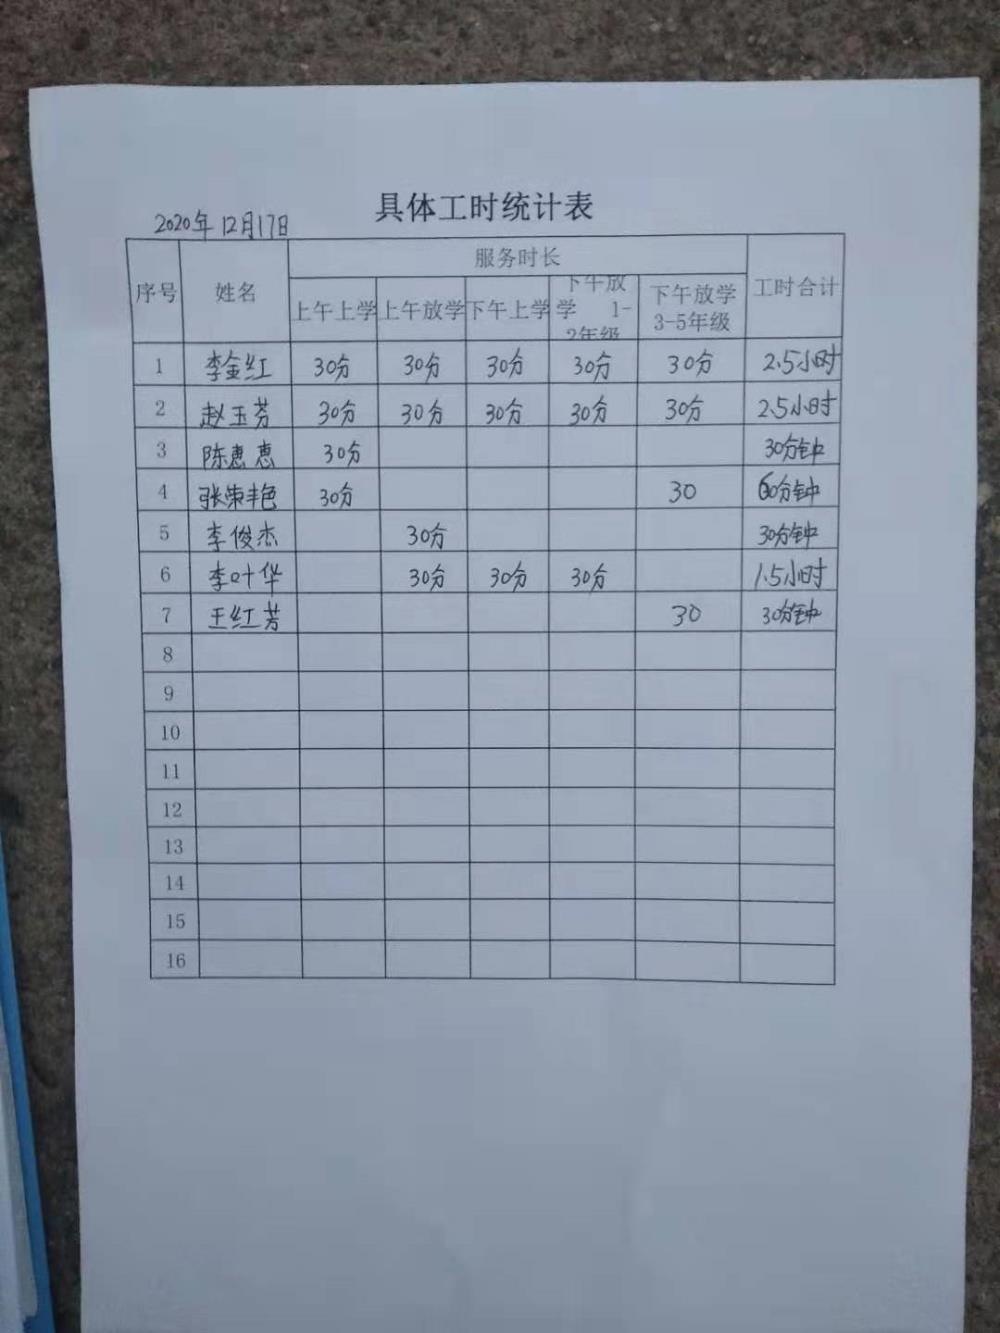 具体工时统计表
2020年12月17日
序号 姓名 服务时长 工时合计
上午上学 上午放学 下午上学 下午放学 1-2年级 下午放学 3-5年级
1 李金红 30分 30分 30分 30分 30分 2.5小时
2 赵玉芬 30分 30分 30分 30分 30分 2.5小时
3 陈惠惠 30分 30分钟
4 张荣艳 30分 30 60分钟
5 李俊杰 30分 30分钟
6 李叶华 30分 30分 30分 1.5小时
7 王红芳 30 30分钟
8
9
10
11
12
13
14
15
16